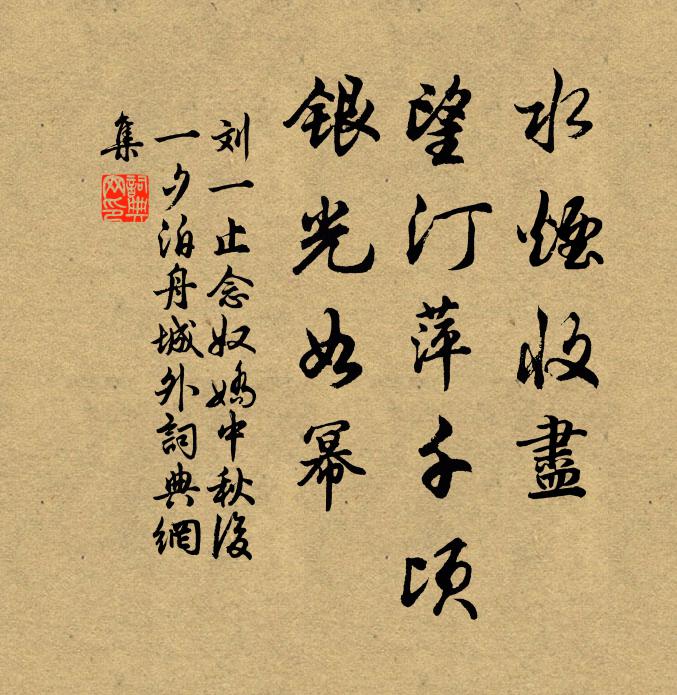 水煙收盡
望汀萍千頃
銀光如幂
刘一止念奴嬌中秋後
一夕泊舟城外詞典網
集
詞典
网印